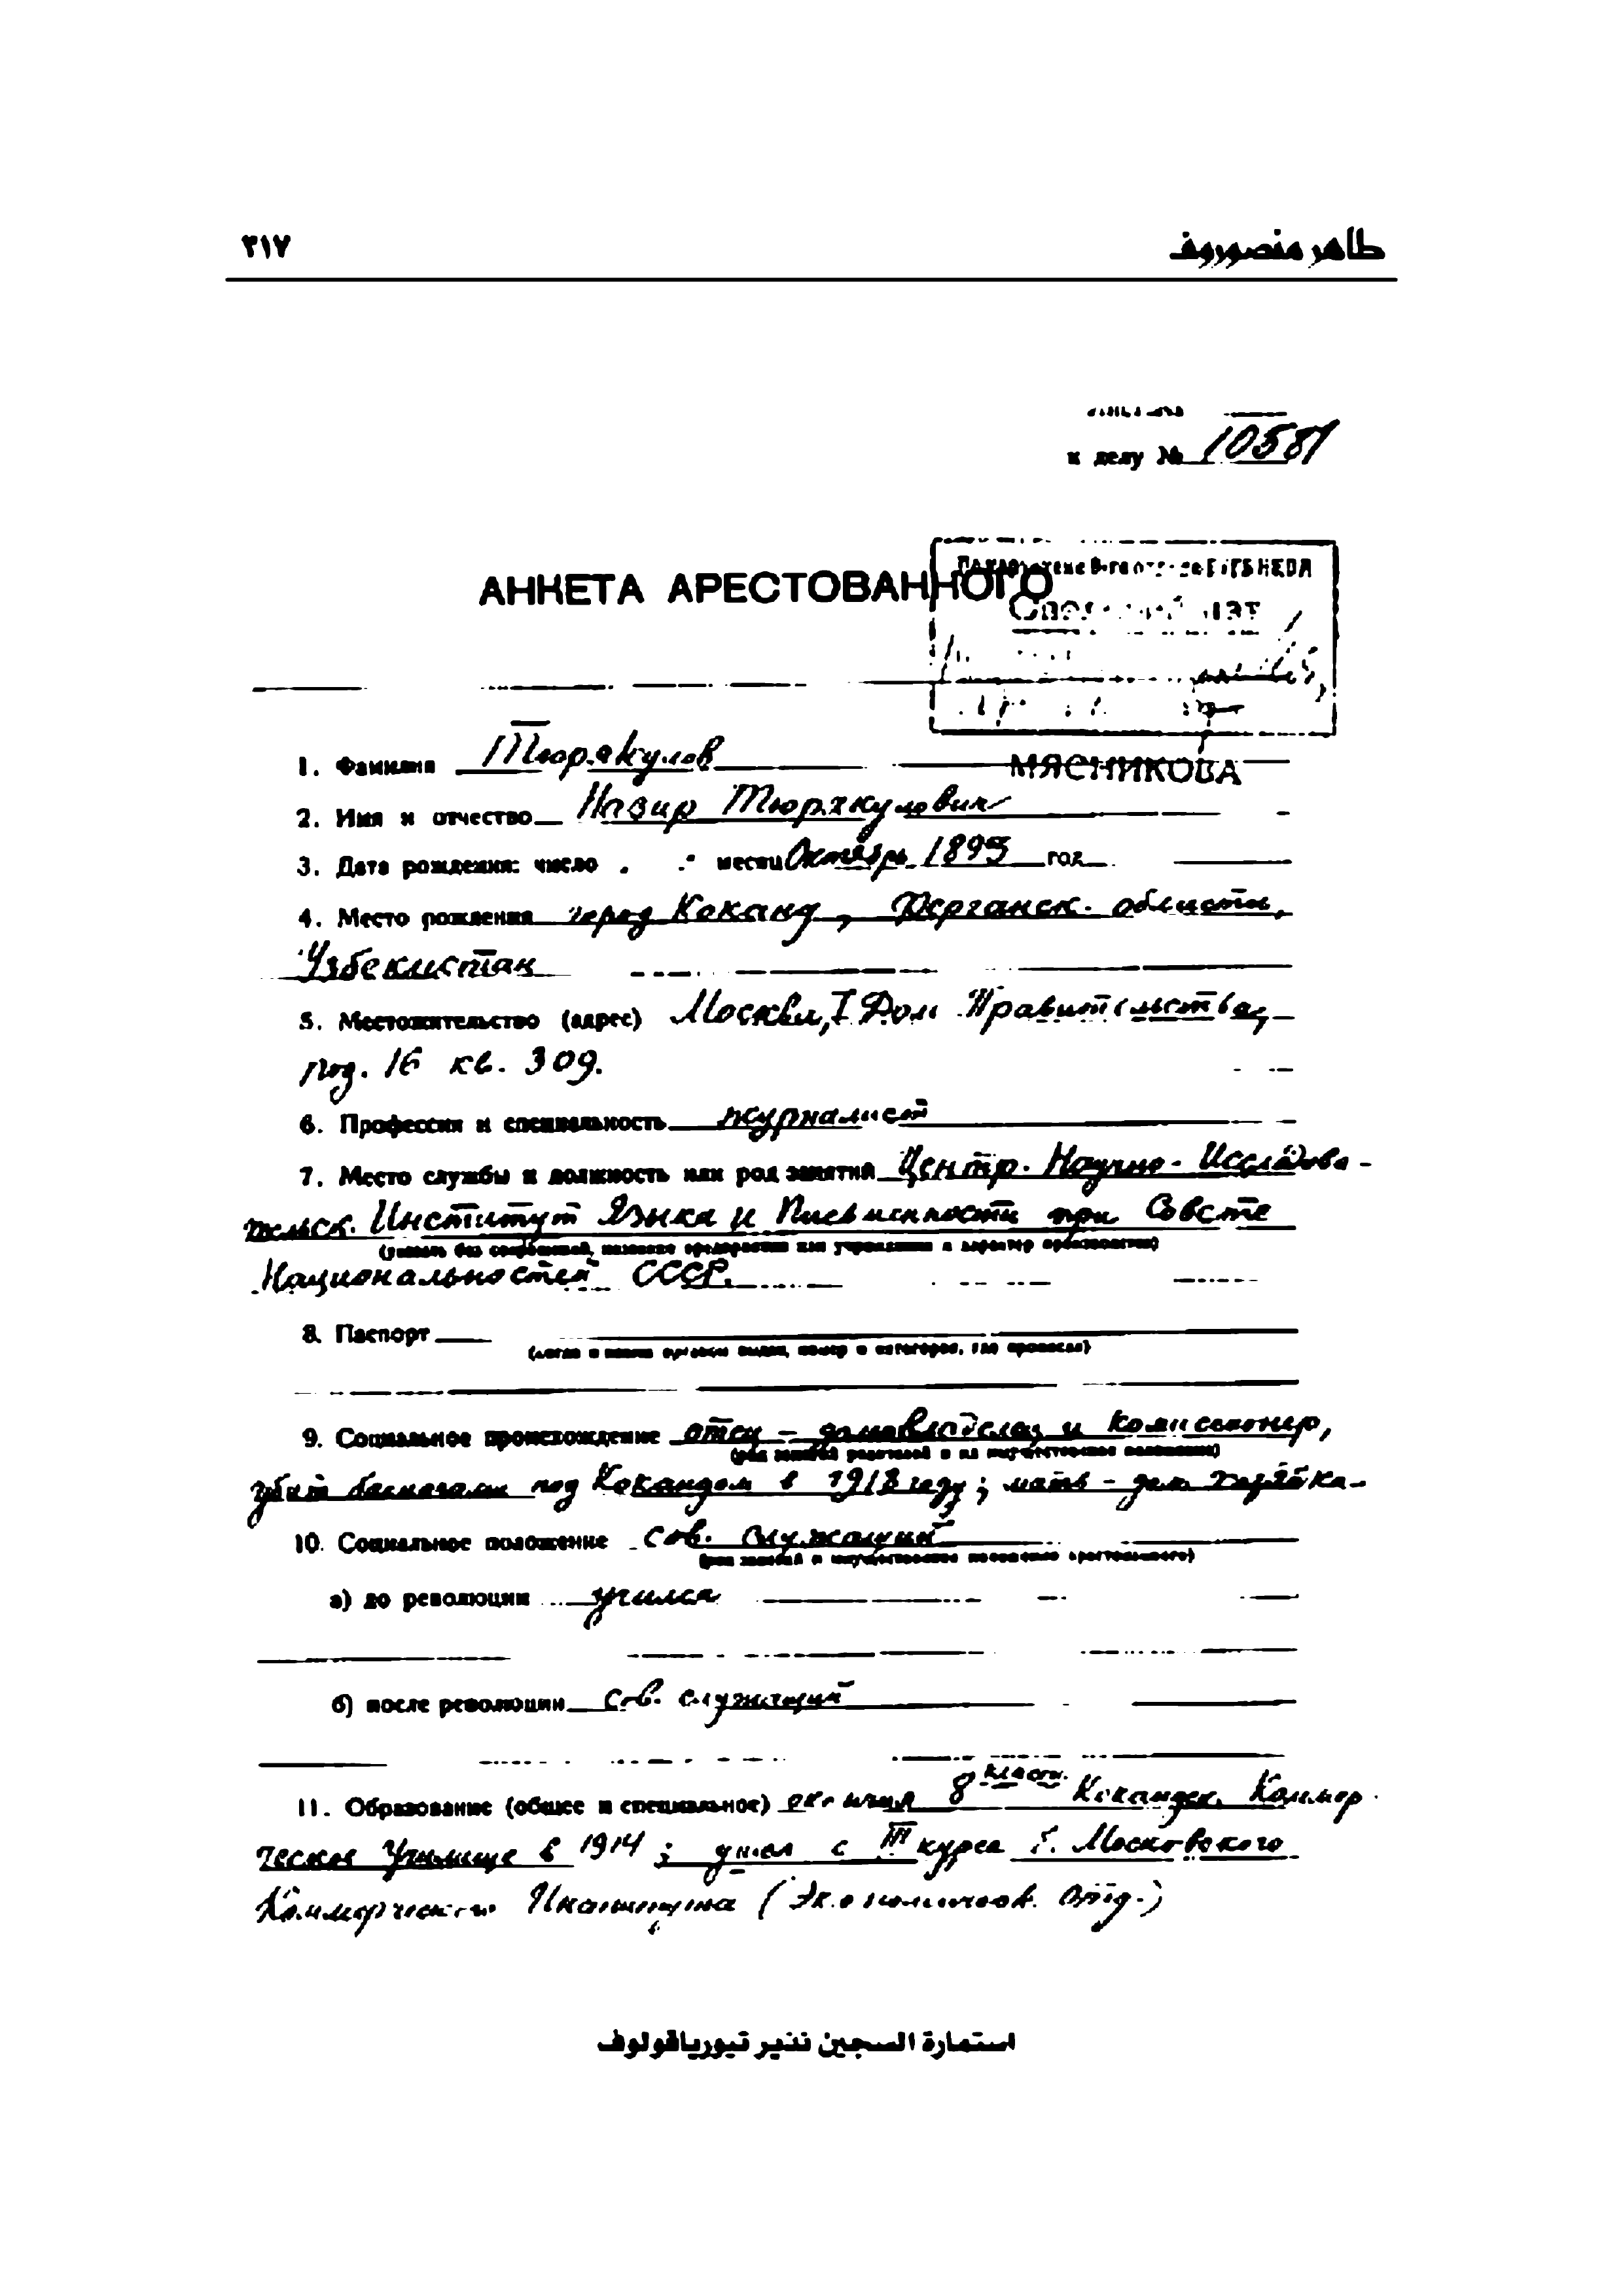 ٣١٧
طاهر منصوروف
к делу № 10581
АНКЕТА АРЕСТОВАННОГО
1. Фамилия Тюрякулов
МЯСНИКОВА
2. Имя и отчество Назир Тюрякулович
3. Дата рождения: число месяц Октябрь 1893 год
4. Место рождения город Коканд, Ферганск. области,
Узбекистан
5. Местожительство (адрес) Москва, I Дом Правительства,
под. 16 кв. 309.
6. Профессия и специальность журналист
7. Место службы и должность или род занятий Центр. Научно-Исследова-
тельск. Институт Языка и Письменности при Совете
(указать без сокращений, название предприятия или учреждения и характер производства)
Национальностей СССР.
8. Паспорт
(когда и каким органом выдан, номер и категория, где прописан)
9. Социальное происхождение отец - домовладелец и комиссионер,
(род занятий родителей и их имущественное положение)
убит басмачами под Кокандом в 1918 году; мать - дом.
10. Социальное положение сов. служащий
(род занятий и имущественное положение арестованного)
а) до революции учился
б) после революции сов. служащий
11. Образование (общее и специальное) окончил 8 класс. Кокандск. Коммер
ческое Училище в 1914; ушел с III курса Московского
Коммерческого Института (Экономическ. отд.)
استمارة السجين نذير تيورياقولوف